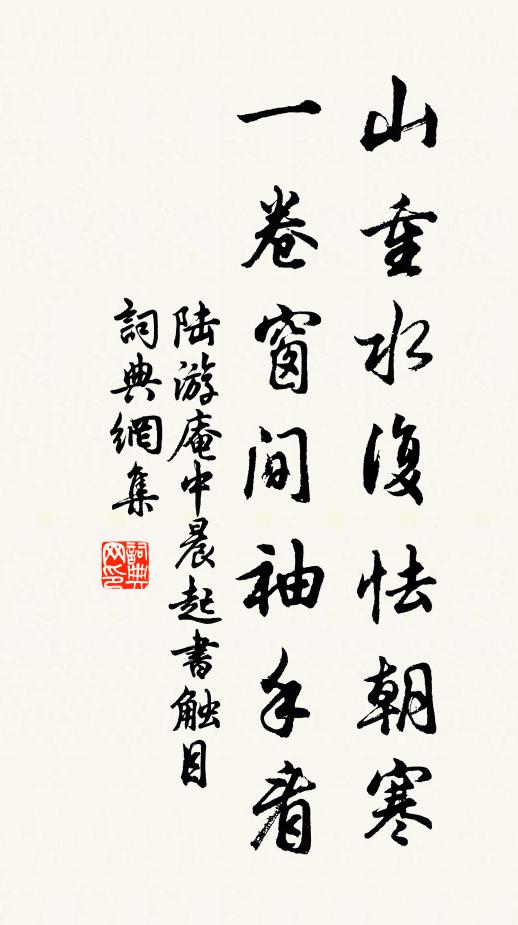 山重水復怯朝寒
一卷窗間袖手看
陆游庵中晨起書触目
詞典網集
詞典网印